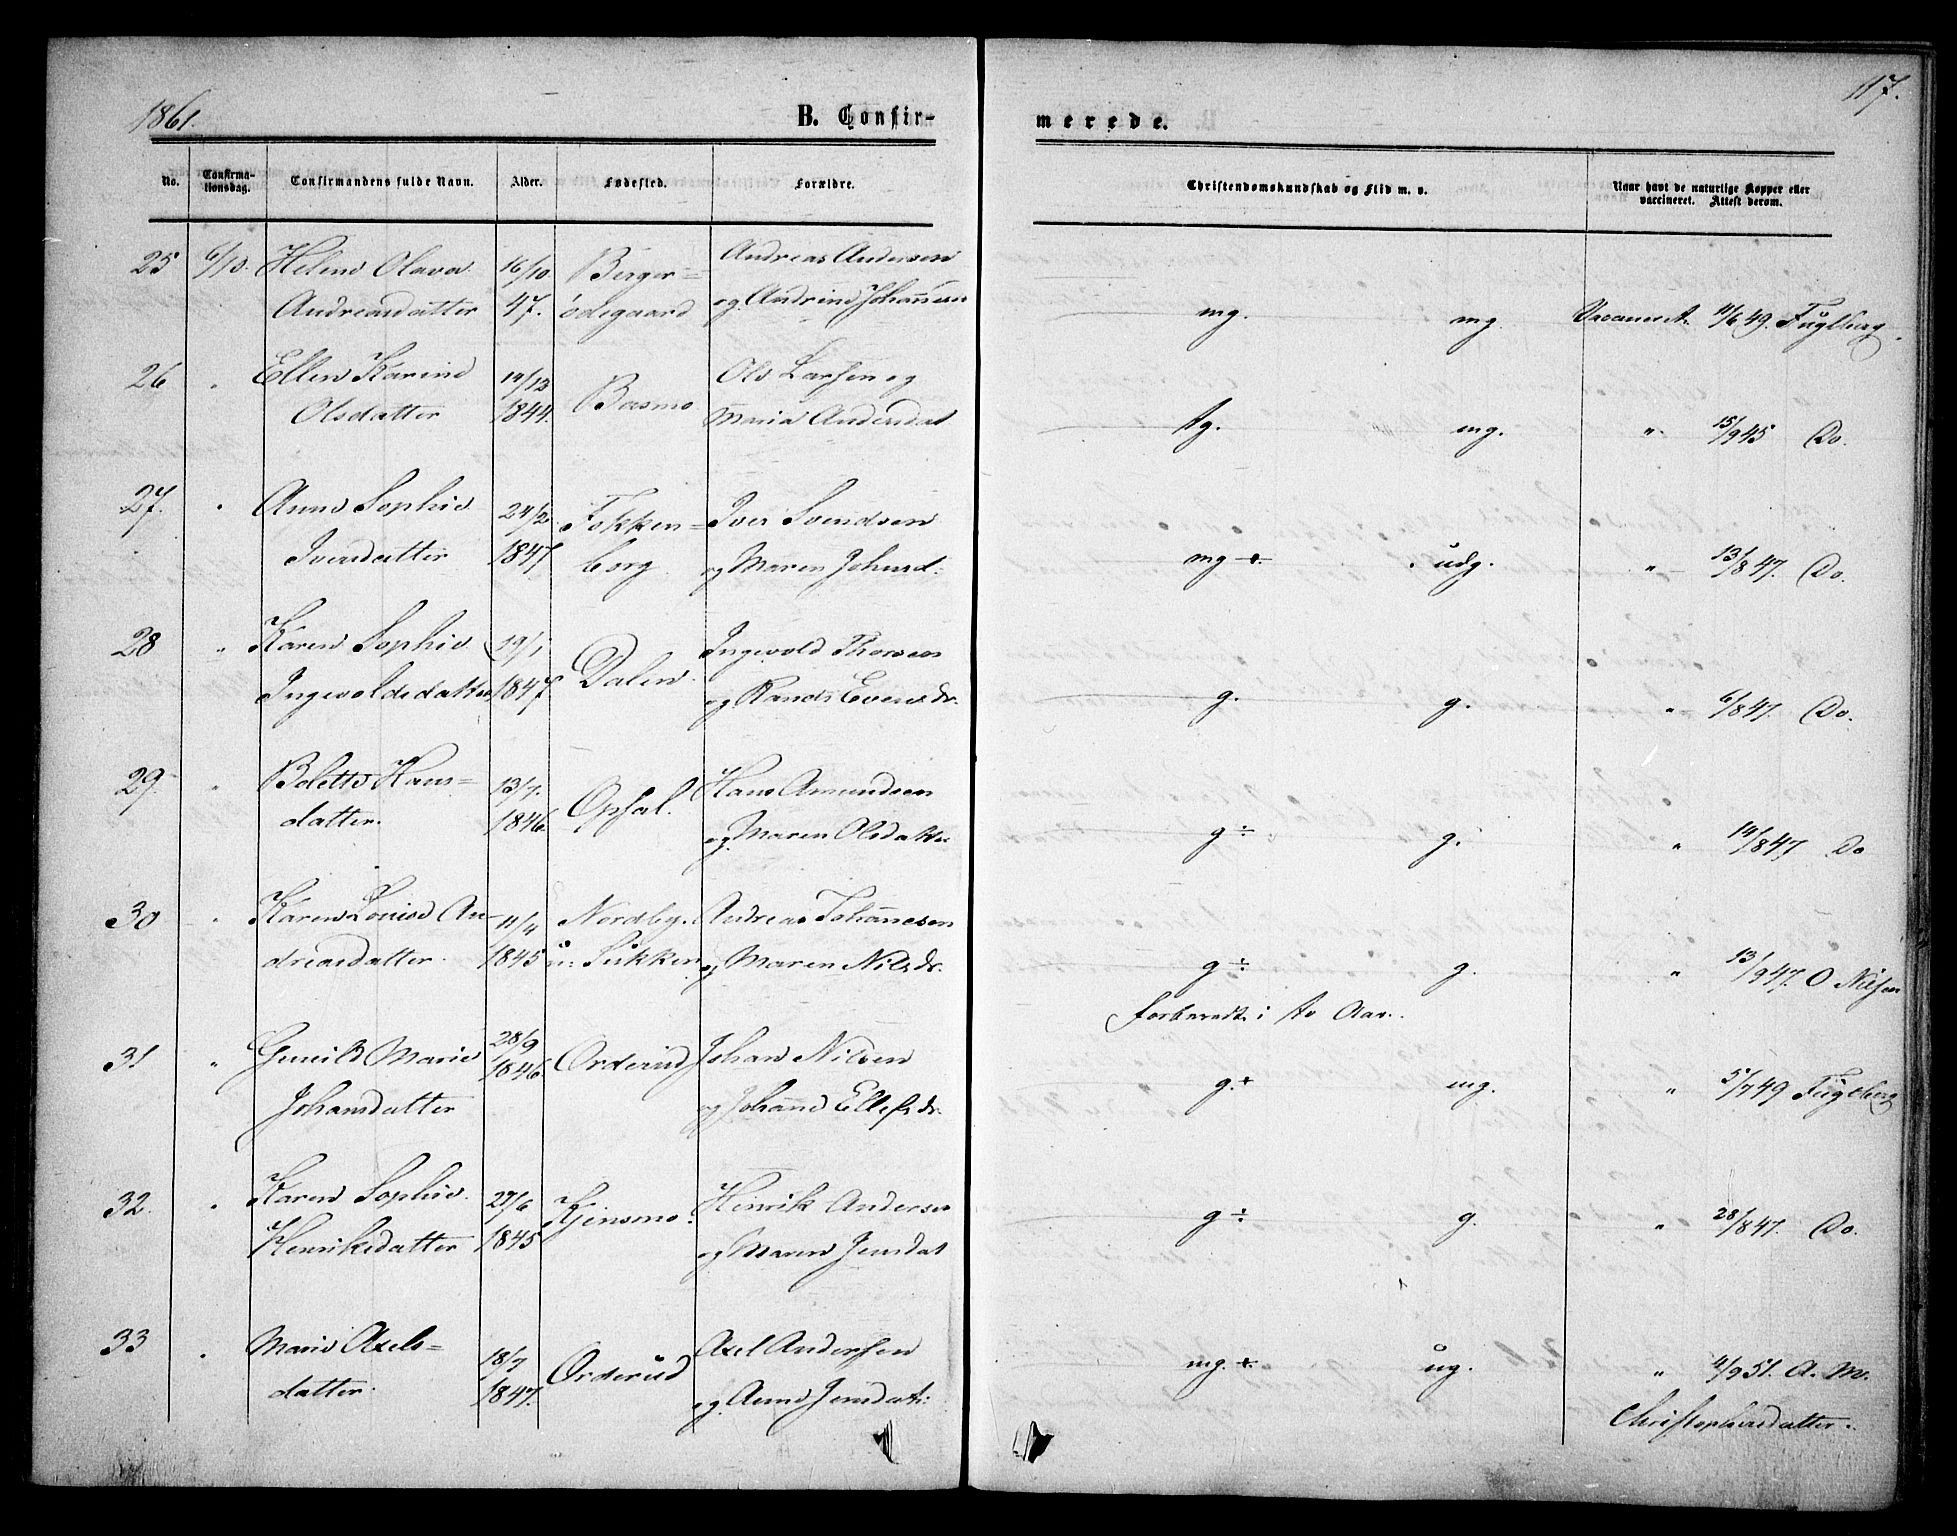 1861.
B. Confir-
merede.
117.
No.
Confirma-
tionsdag.
Confirmandens fulde Navn.
Alder.
Fødested.
Forældre.
Christendomskundskab og Flid m. v.
Naar havt de naturlige Kopper eller
vaccineret. Attest derom.
25 6/10. Helene Olava 16/10 Berger= Andreas Andersen
Andreasdatter 47. ødegaard og Andrine Johannesen
mg. mg. Vaccineret 11/6 49. Fuglberg
26 " Ellen Karine 14/12 Basmo Ole Larsen og
Olsdatter 1844. Maria Andersdat
tg. mg. " 15/9 45 Do.
27. " Anne Sophie 24/2 Fokken= Iver Svendsen
Iversdatter 1847 borg og Maren Johnsd:
mg udg. " 13/8 47. Do.
28 " Karen Sophie 19/1 Dalen Ingevold Thorsen
Ingevoldsdatter 1847. og Randi Evensdr.
g. g. " 6/8 47. Do.
29. " Bolette Hans= 13/7. Opsal. Hans Amundsen
datter. 1846. og Maren Olsdatter
g ÷ g. " 19/8 47 Do
30 " Karen Louise An- 11/4 Nordby. Andreas Johannesen
dreasdatter. 1845 u: Sukken og Maren Nilsdr.
g ÷ g. " 13/9 47. O Nilsen
Forberedt i to Aar.
31 " Gunild Marie 28/9 Orderud Johan Nilsen
Johansdatter 1846. og Johanne Ellefsdr.
g.+ mg. " 5/7 49 Fugleberg
32. " Karen Sophie 27/6 Kjensmo. Henrik Andersen
Henriksdatter 1845 og Maren Jensdat
g ÷ g. " 28/8 47. Do.
33 " Marie Axels= 18/7 Orderud Axel Andersen
datter. 1847. og Anne Jensdatt:
mg. ug. " 4/9 51. A. M.
Christophersdatter.